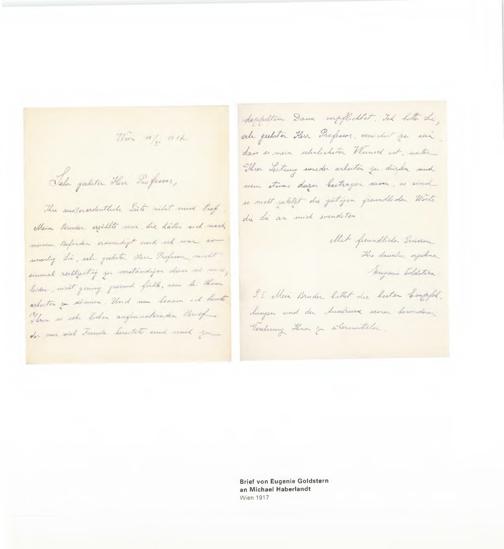 Sehr geehrter Herr Professor,
Ihre ausserordentliche Güte rührt mich tief.
Mein Bruder erzählte mir, Sie hätten sich nach
meinem Befinden erkundigt und ich war so
Sie, sehr geehrter Herr Professor, nicht
einmal rechtzeitig zu verständigen dass ich mich,
leider, nicht genug gesund fühle, um bei Ihnen
arbeiten zu können. Und nun bekam ich heute
Ihren so sehr lieben Brief
der mir viel Freude bereitete und mich zu
doppeltem Dank verpflichtet. Ich bitte Sie,
sehr geehrter Herr Professor, versichert zu sein
dass es mein sehnlichster Wunsch ist, unter
Ihrer Leitung wieder arbeiten zu dürfen und
wenn etwas dazu beitragen kann, so sind
es nicht zuletzt die gütigen freundlichen Worte
die Sie an mich wendeten
Mit freundlichen Grüssen
Ihre dankbar ergebene
Eugenie Goldstern
P.S. Mein Bruder bittet die besten Empfeh-
lungen und den Ausdruck seiner besonderen
Verehrung Ihnen zu übermitteln.
Brief von Eugenie Goldstern
an Michael Haberlandt
Wien 1917